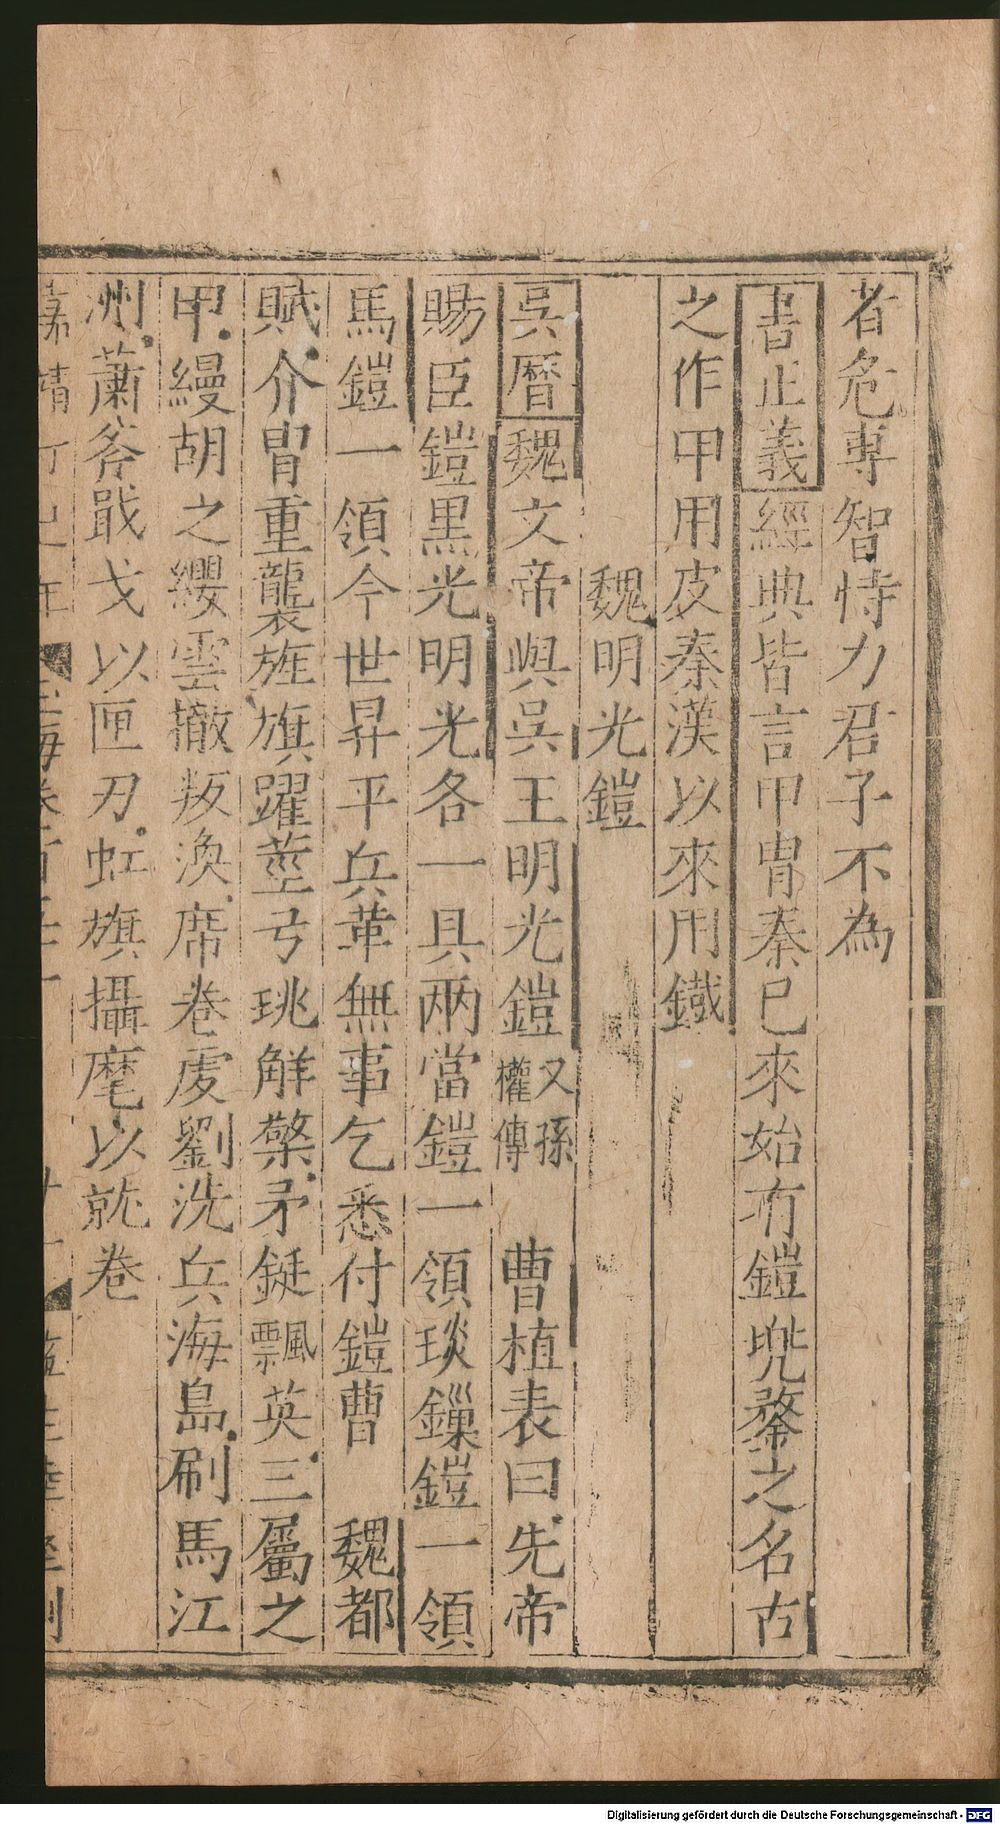 者危專智恃力君子不為
書正義經典皆言甲冑秦已來始有鎧兠鍪之名古
之作甲用皮秦漢以來用鐵
魏明光鎧
吳曆魏文帝與吳王明光鎧又孫權傳 曹植表曰先帝
賜臣鎧黒光明光各一具兩當鎧一領琰鏁鎧一領
馬鎧一領今世昇平兵革無事乞悉付鎧曹 魏都
賦介冑重襲旌旗躍莖弓珧解檠矛鋋飄英三屬之
甲縵胡之纓雲撤叛渙席卷虔劉洗兵海島刷馬江
州蕭斧戢戈以匣刃虹旗攝麾以就卷
嘉靖丁巳年 玉海卷百五十一 監生陸 刊
Digitalisierung gefördert durch die Deutsche Forschungsgemeinschaft - DFG